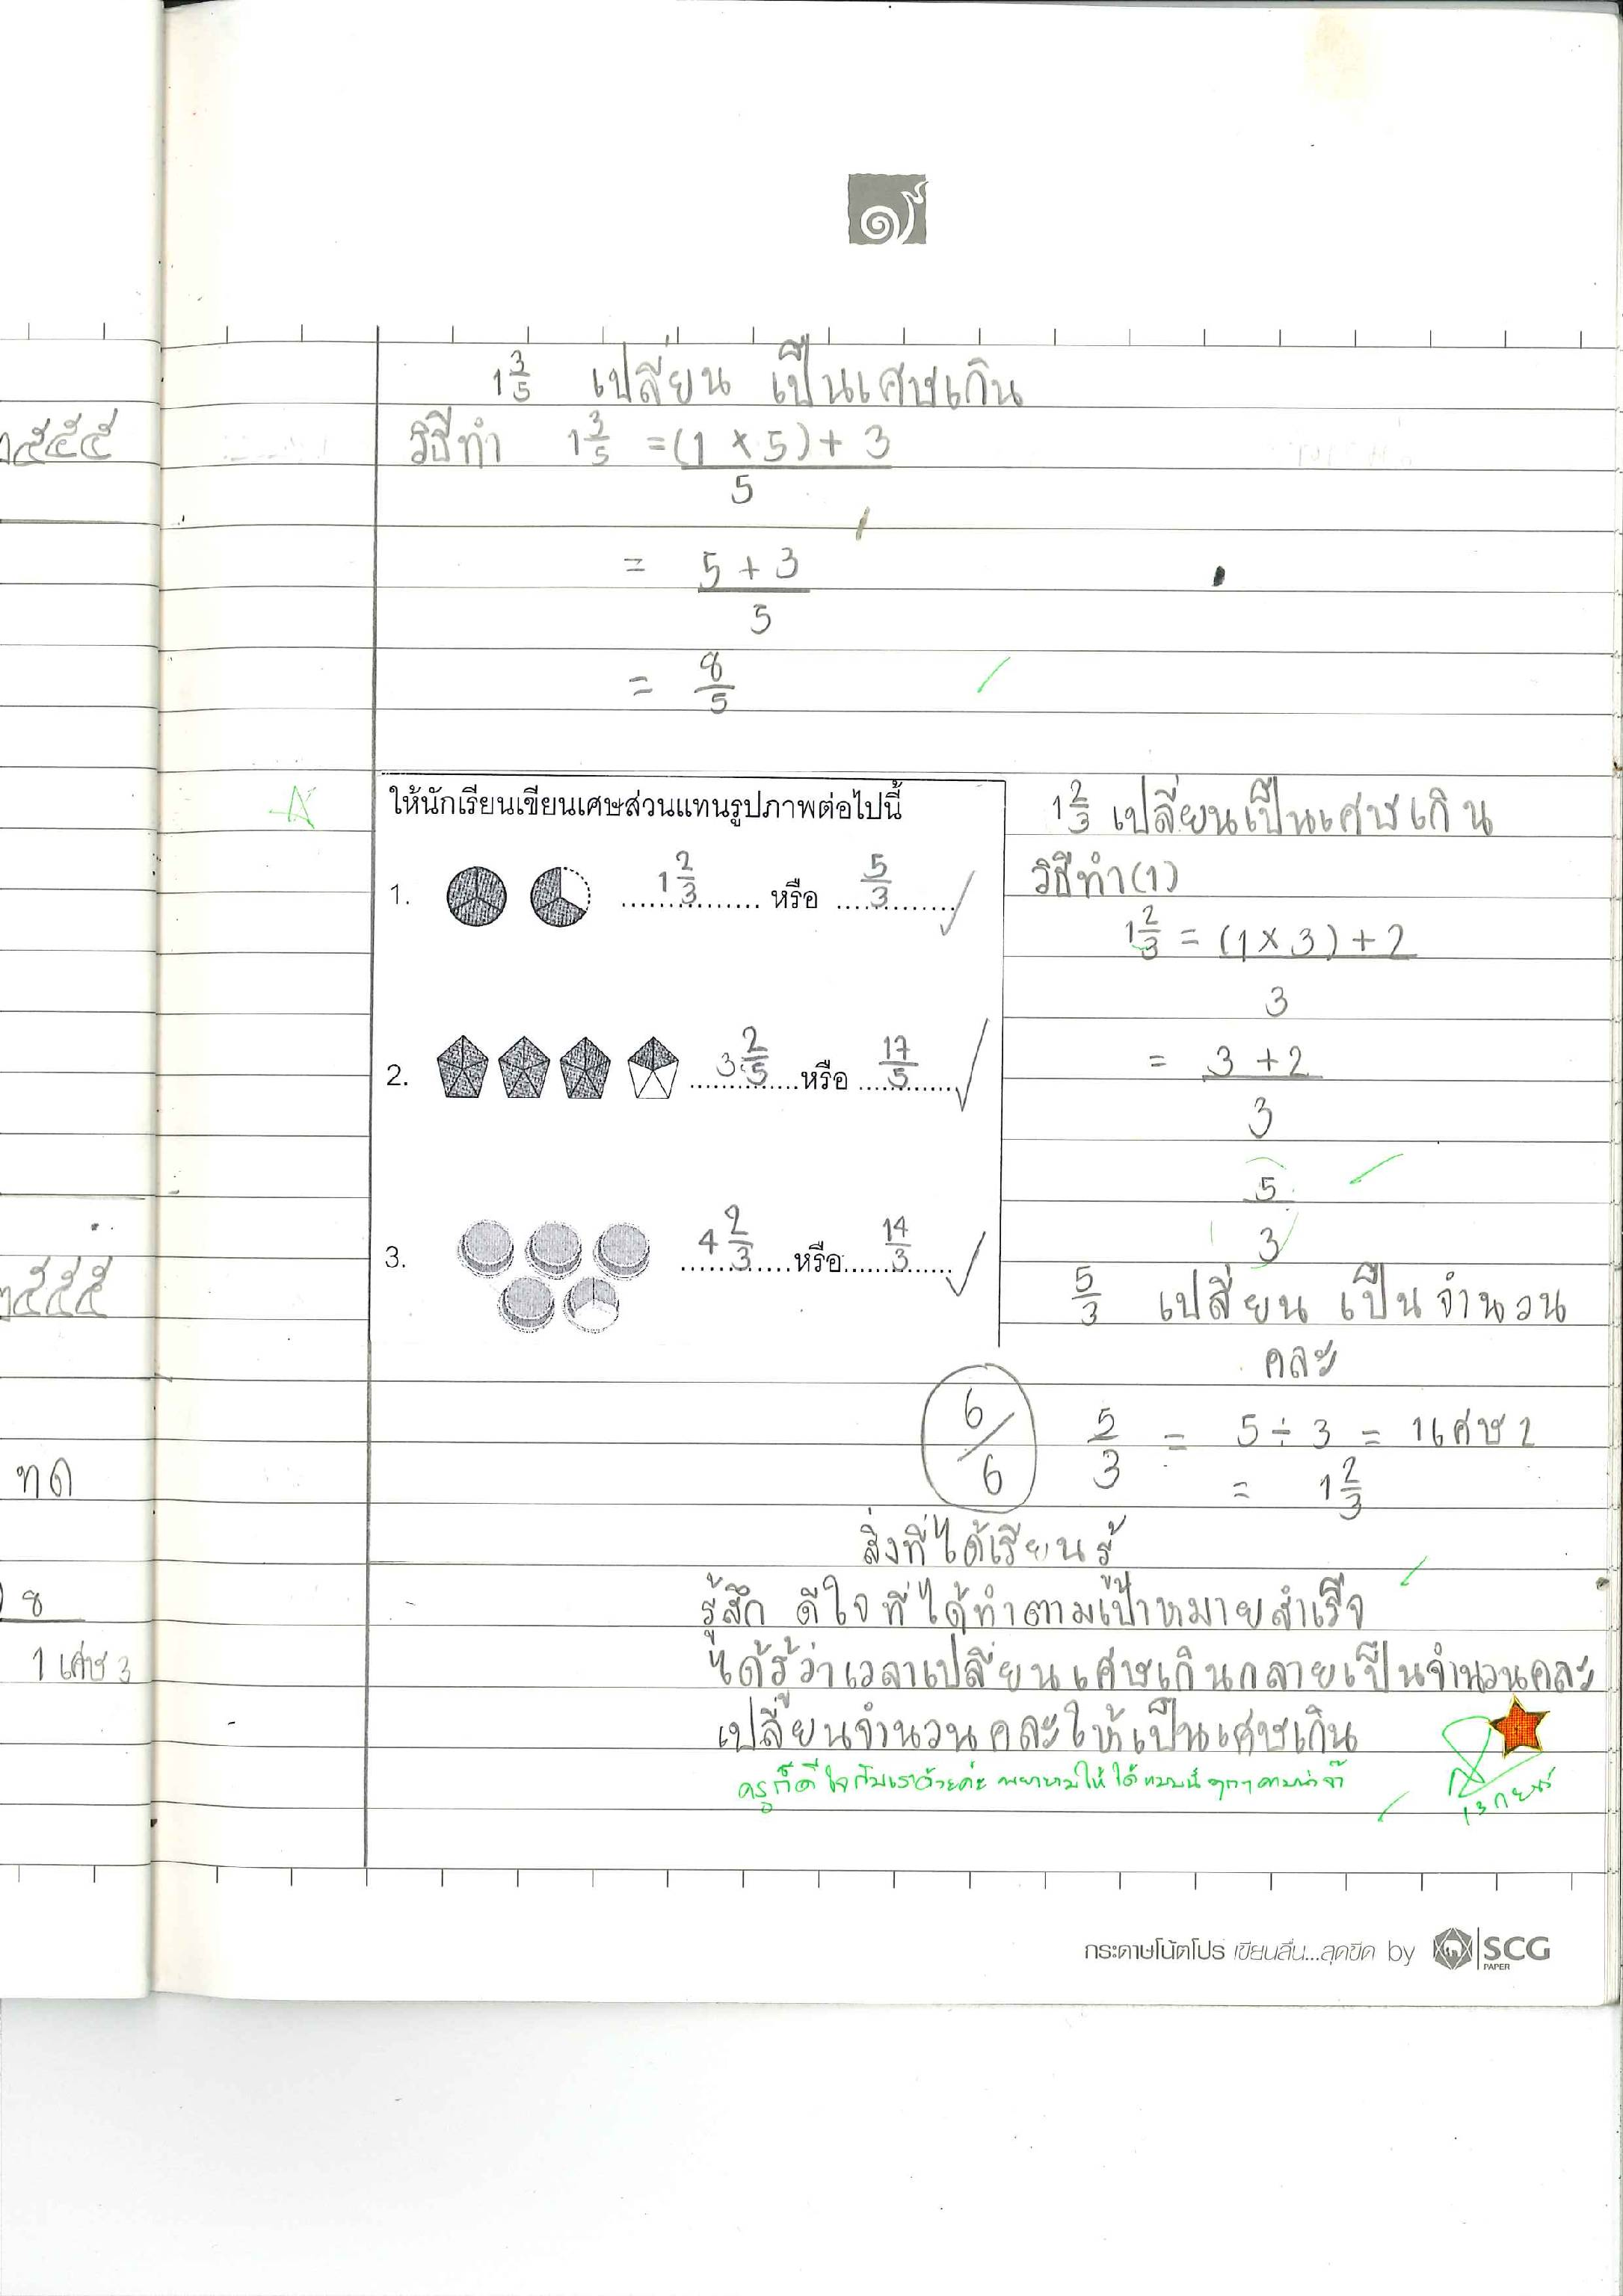 ๒๕๕๕
1 3/5 เปลี่ยน เป็นเศษเกิน
วิธีทำ 1 3/5 = (1 × 5) + 3 / 5
= 5 + 3 / 5
= 8/5
ให้นักเรียนเขียนเศษส่วนแทนรูปภาพต่อไปนี้
1. 1 2/3 หรือ 5/3
2. 3 2/5 หรือ 17/5
3. 4 2/3 หรือ 14/3
1 2/3 เปลี่ยนเป็นเศษเกิน
วิธีทำ (1)
1 2/3 = (1 × 3) + 2 / 3
= 3 + 2 / 3
5/3
5/3 เปลี่ยน เป็นจำนวน
คละ
6/6
5/3 = 5 ÷ 3 = 1 เศษ 2
= 1 2/3
๒๕๕๕
ทด
8
1 เศษ 3
สิ่งที่ได้เรียนรู้
รู้สึก ดีใจที่ได้ทำตามเป้าหมายสำเร็จ
ได้รู้ว่าเวลาเปลี่ยนเศษเกินกลายเป็นจำนวนคละ
เปลี่ยนจำนวนคละให้เป็นเศษเกิน
ครูก็ดีใจกับเราด้วยค่ะ พยายามให้ได้แบบนี้ทุกๆ
กระดาษโน้ตโปร เขียนลื่น...สุดขีด by SCG PAPER